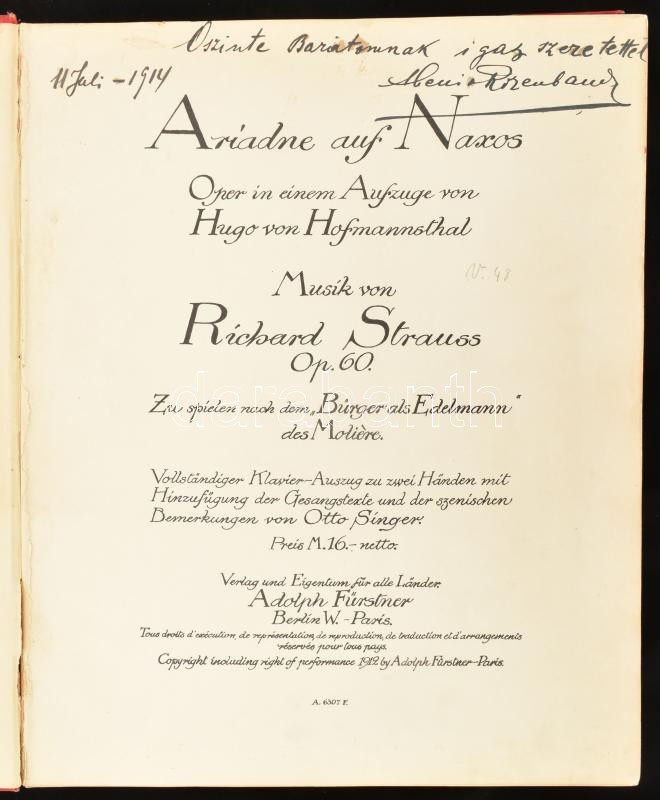 Oszinte Barátomnak igaz szeretettel
11 Juli - 1914
Ariadne auf Naxos
Oper in einem Aufzuge von
Hugo von Hofmannsthal
V. 48
Musik von
Richard Strauss
Op. 60.
Zu spielen nach dem „Bürger als Edelmann“
des Molière.
darabanth
Vollständiger Klavier-Auszug zu zwei Händen mit
Hinzufügung der Gesangstexte und der szenischen
Bemerkungen von Otto Singer.
Preis M.16.- netto.
Verlag und Eigentum für alle Länder.
Adolph Fürstner
Berlin W. - Paris.
Tous droits d'exécution, de représentation, de reproduction, de traduction et d'arrangements
réservés pour tous pays.
Copyright including right of performance 1912 by Adolph Fürstner-Paris.
A. 6307 F.